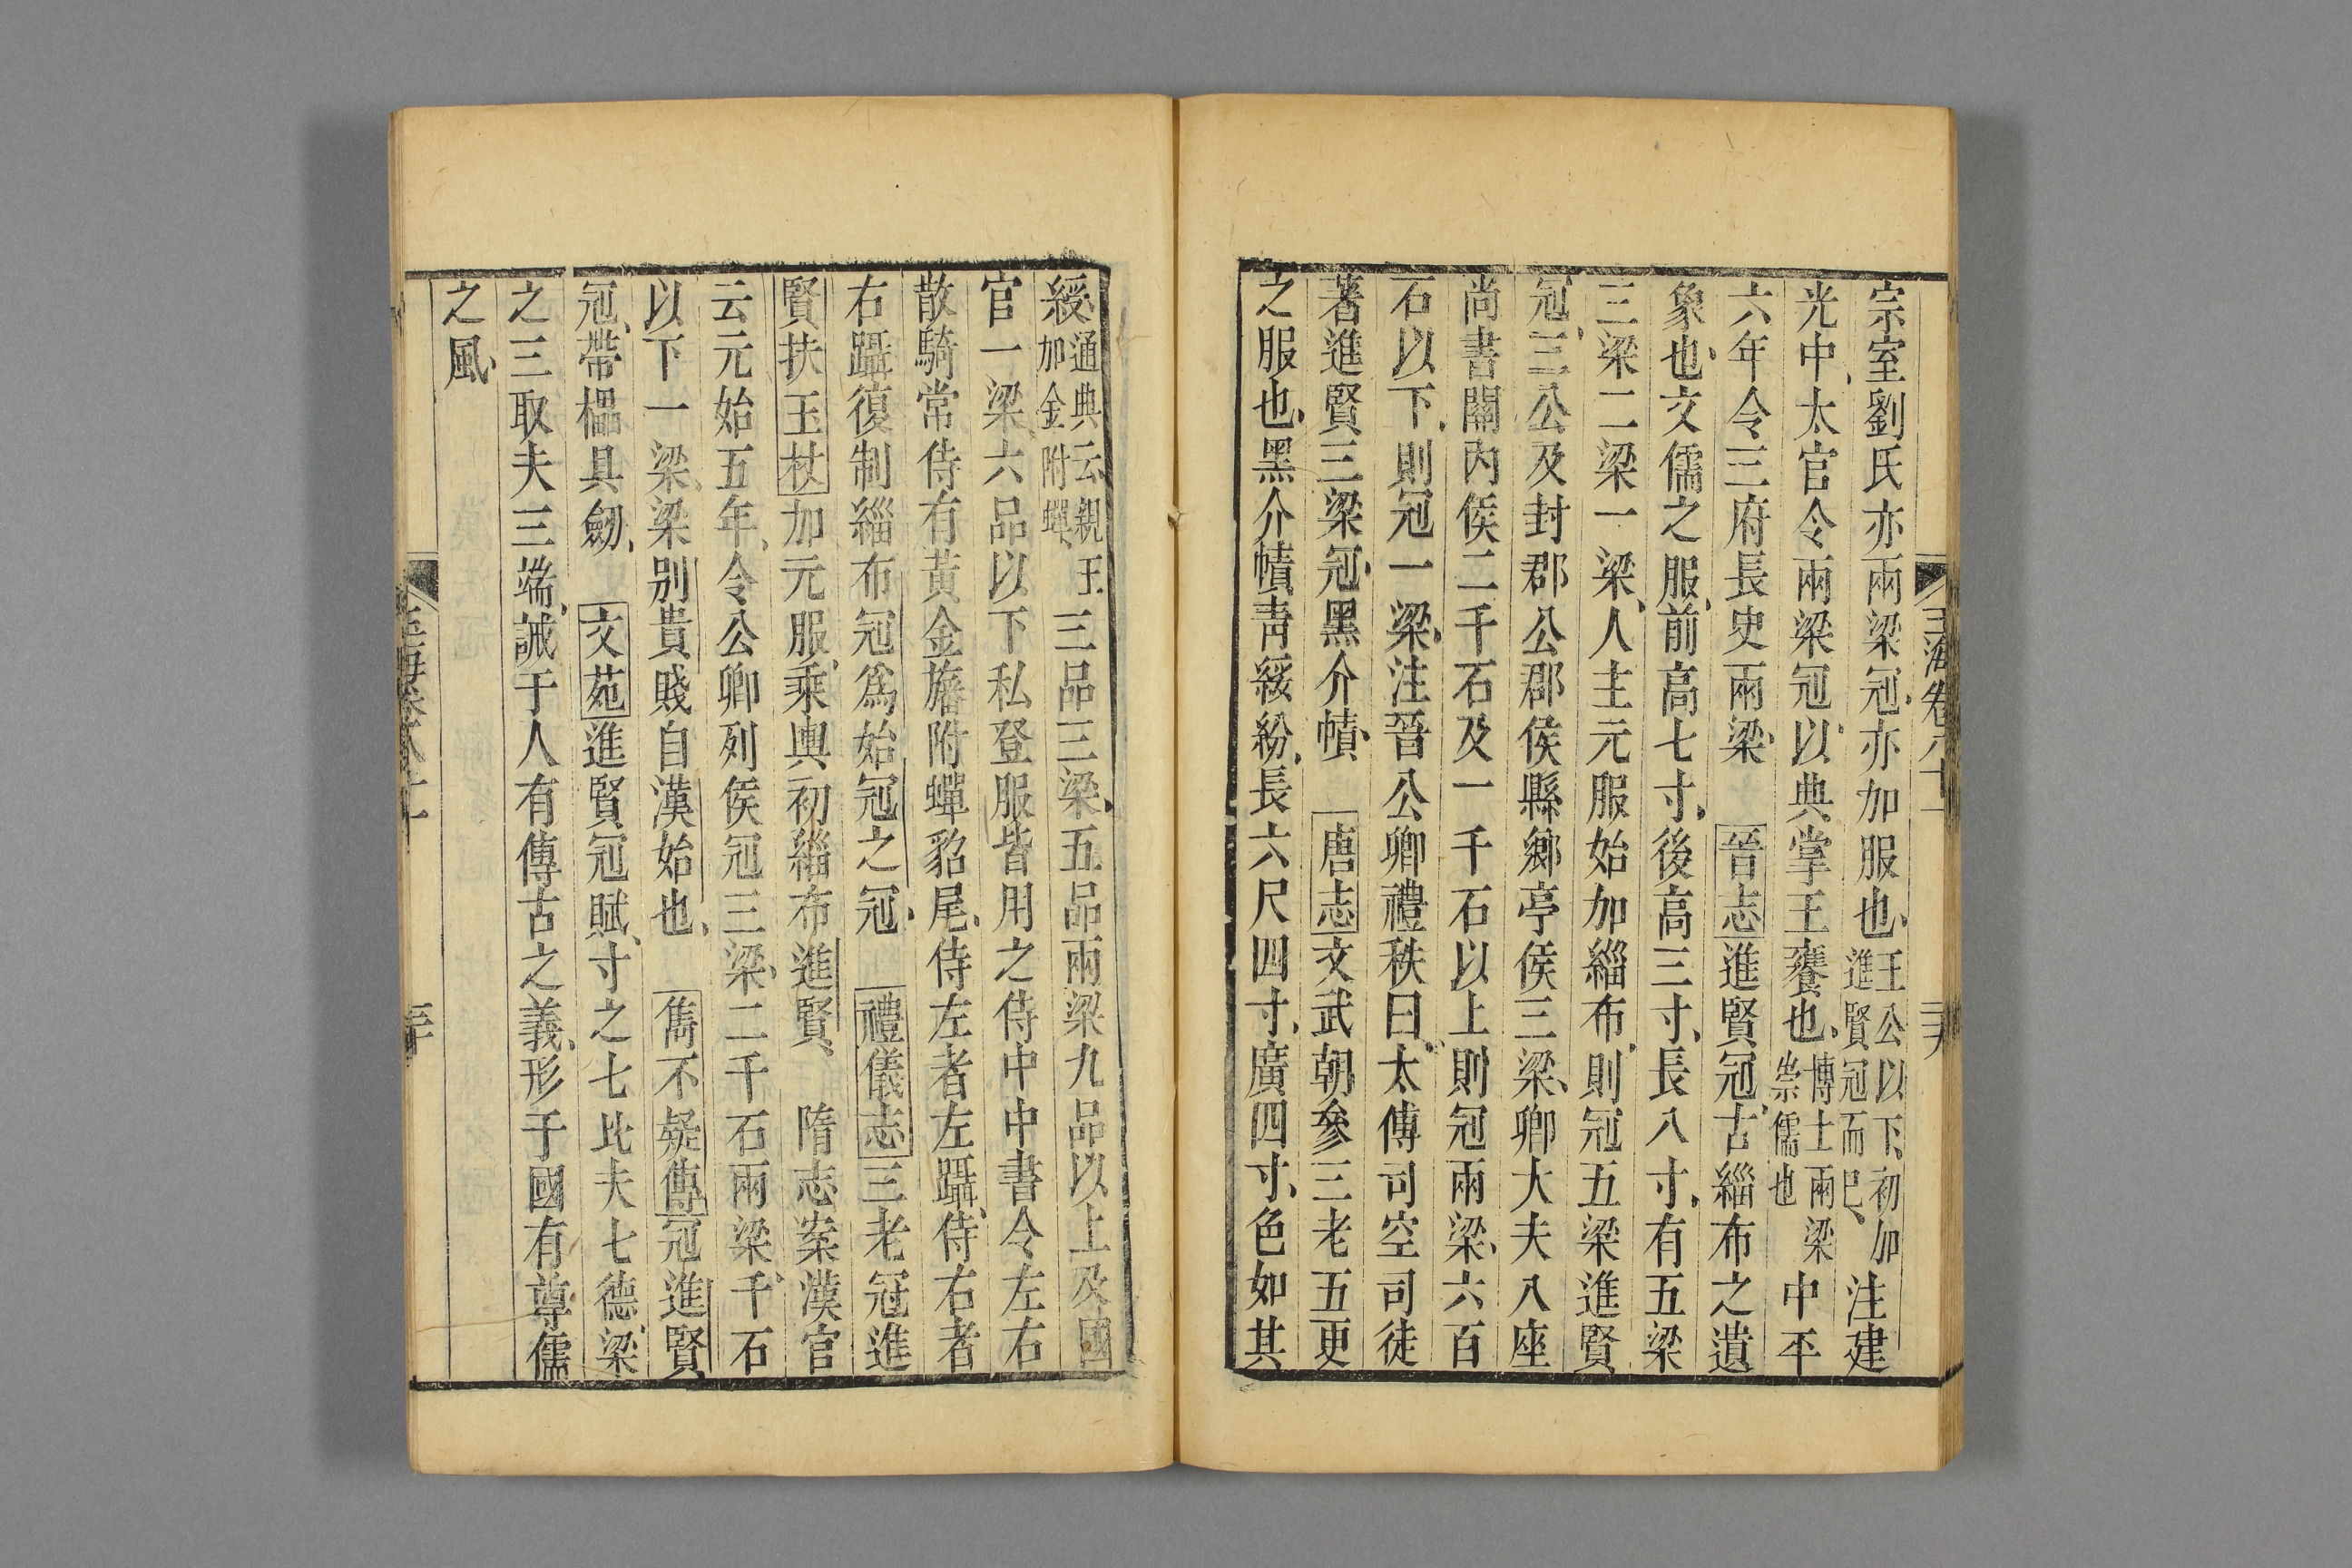 宗室劉氏亦兩梁冠亦加服也王公以下初加進賢冠而巳注建
光中太官令兩梁冠以典掌王饔也博士兩梁崇儒也中平
六年令三府長史兩梁 晉志進賢冠古緇布之遺
象也文儒之服前高七寸後高三寸長八寸有五梁
三梁二梁一梁人主元服始加緇布則冠五梁進賢
冠三公及封郡公郡侯縣鄉亭侯三梁卿大夫八座
尚書關內侯二千石及一千石以上則冠兩梁六百
石以下則冠一梁注晉公卿禮秩曰太傅司空司徒
著進賢三梁冠黑介幘 唐志文武朝參三老五更
之服也黑介幘青緌紛長六尺四寸廣四寸色如其
玉海卷八十一
綬通典云親王加金附蟬三品三梁五品兩梁九品以上及國
官一梁六品以下私登服皆用之侍中中書令左右
散騎常侍有黃金旛附蟬貂尾侍左者左躡侍右者
右躡復制緇布冠爲始冠之冠 禮儀志三老冠進
賢扶玉杖加元服乘輿初緇布進賢 隋志案漢官
云元始五年令公卿列侯冠三梁二千石兩梁千石
以下一梁梁別貴賤自漢始也 雋不疑傳冠進賢
冠帶櫑具劒 文苑進賢冠賦寸之七比夫七德梁
之三取夫三端誠于人有傳古之義形于國有尊儒
之風
玉海卷八十一
三十